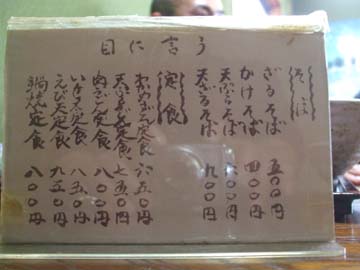 目に言う
そば
ざるそば 五〇〇円
かけそば 四〇〇円
天ぷらそば 〇〇円
天ざるそば 九〇〇円
定食
わかさぎ定食 六五〇円
天ぷら定食 七五〇円
定食 八〇〇円
定食 八五〇円
えび天定食 九五〇円
鍋焼定食 八〇〇円